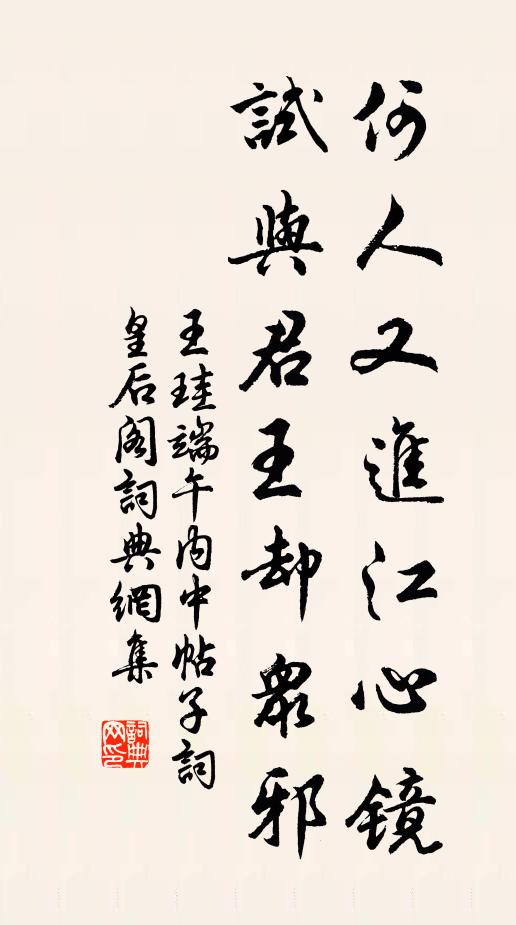 何人又進江心鏡
試與君王却衆邪
王珪端午内中帖子詞
皇后阁詞典網集
詞典网印